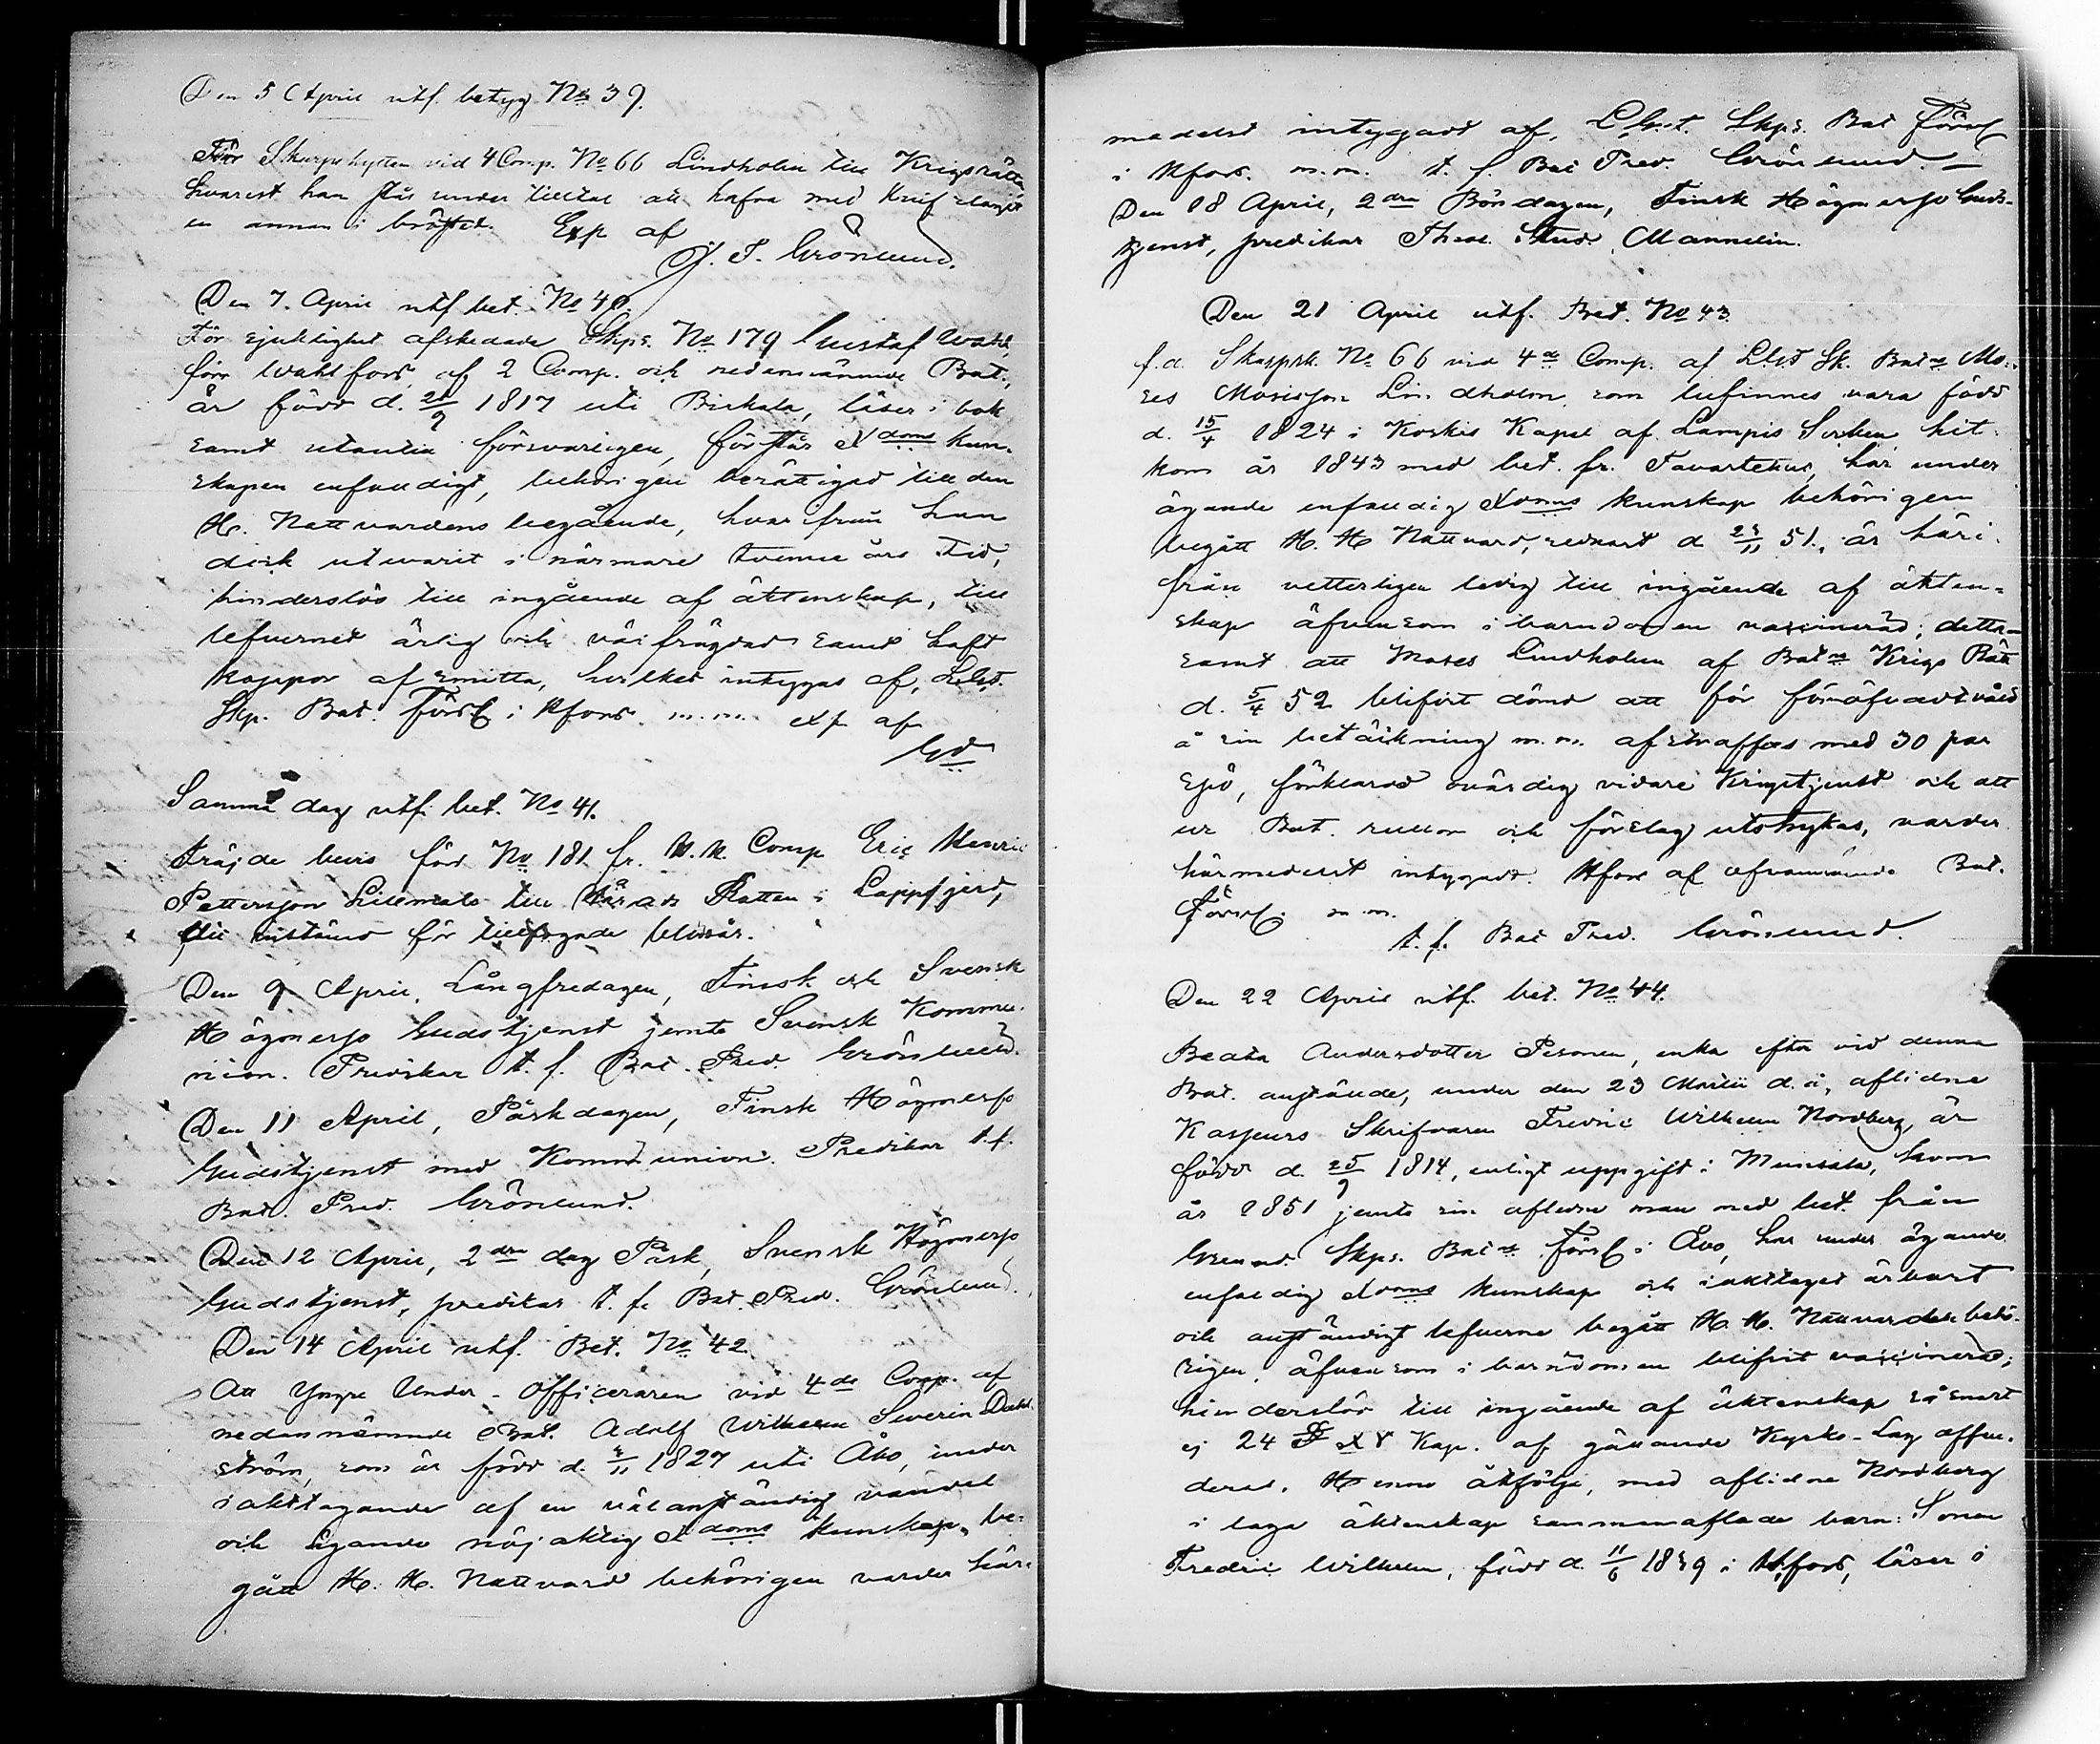 Den 5 April utf. betyg No 39.
För Skarpskytten vid 4 Comp. No 66 Lindholm till Krigsrätten
hvarest han står under tilltal att hafva med knif slagit
en annan i bröstet. Exp af
J. F. Grönlund.
Den 7. April utf bet. No 40.
För sjuklighet afskedade Skps. No 179 Gustaf Wahl,
förr Wahlfors, af 2 Comp. och nedannämnde Bat.,
är född d. 21/9 1817 uti Birkala, läser i bok
samt utantill försvarligen, förstår Xdoms kun-
skapen enfaldigt, behörigen berättigad till den
H. Nattvardens begående, hvarifrån han
dock utevarit i närmare tvenne års tid,
hinderslös till ingående af äktenskap, till
lefvernet ärlig och välfrägdad samt haft
koppor af smitta, hvilket intygas af, Lifst.
Skp. Bat. Förs. i Hfors. m.m. exp af
Gd
Samma dag utf. bet. No 41.
Fräjde bevis för No 181 fr. H.K. Comp Eric Henric
Pettersson Lillmats till Härads Rätten i Lappfjerd,
der instämd för tillfogade blånår.
Den 9 April, Långfredagen, Finsk och Svensk
Högmesso Gudstjenst jemte Svensk Kommu-
nion. Predikar t. f. Bat. Pred. Grönlund.
Den 11 April, Påskdagen, Finsk Högmesso
Gudstjenst med Kommunion. Predikar t.f.
Bat. Pred. Grönlund.
Den 12 April, 2dra dag Påsk, Svensk Högmesso
Gudstjenst, predikar t. f. Bat. Pred. Grönlund.
Den 14 April utf. Bet. No 42
Att Yngre Under-Officeraren vid 4de Comp. af
nedannämnde Bat. Adolf Wilhelm Severin Dahl-
ström, som är född d. 3/11 1827 uti Åbo, under
iakttagande af en välanständig vandel
och ägande nöjaktig Xdoms kunskap, be-
gått H. H. Nattvard behörigen varder här-
medelst intygadt af, Lifst. Skps. Bat Förs
i Hfors. m.m. t. f. Bat Pred. Grönlund. —
Den 18 April, 2dra Böndagen, Finsk Högmesso Guds-
tjenst, predikar Theol. Stud. Mannelin.
Den 21 April utf. Bet. No 43.
f.d. Skarpsk. No 66 vid 4de Comp. af Lifst Sk. Batns Mo-
ses Mosisson Lindholm, som befinnes vara född
d. 15/4 1824 i Koskis Kapel af Lampis Socken, hit-
kom år 1843 med bet. fr. Tavastehus, har under
ägande enfaldig Xdoms kunskap behörigen
begått H. H. Nattvard, sednast d 23/11 51., är häri-
från vetterligen ledig till ingående af äkten-
skap äfvensom i barndomen vaccinerad; detta
samt att Moses Lindholm af Batns Krigs Rätt
d. 5/4 52 blifvit dömd att för föröfvadt våld
å sin m.m. afstraffas med 30 par
spö, förklarad ovärdig vidare Krigstjenst och att
ur Bat. rullor och förslag utstrykas, varder
härmedelst intygadt. Hfors af ofvannämnde Bat.
Förs. m.m.
t. f. Bat Pred. Grönlund.
Den 22 April utf. bet. No 44.
Beata Andersdotter Pesonen, enka efter vid denna
Bat. anstände, under den 23 Martii d. å, aflidne
Kasseurs Skrifvaren Fredric Wilhelm Nordberg, är
född d. 25/9 1814, enligt uppgift i Munsala, kom
år 1851 jemte sin aflidne man med bet. från
Grenad. Skps. Batns Förs. i Åbo, har under ägande
enfaldig Xdoms kunskap och iakttaget ärbart
och anständigt lefverne begått H. H. Nattvarden behö-
rigen, äfvensom i barndomen blifvit vaccinerad;
hinderslös till ingående af äktenskap såsnart
ej 24 § XV Kap. af gällande Kyrko-Lag offen-
deras. Henne åtfölje, med aflidne Nordberg
i laga äktenskap sammanaflade barn: Sonen
Fredric Wilhelm, född d. 11/6 1839 i Hfors, läser i